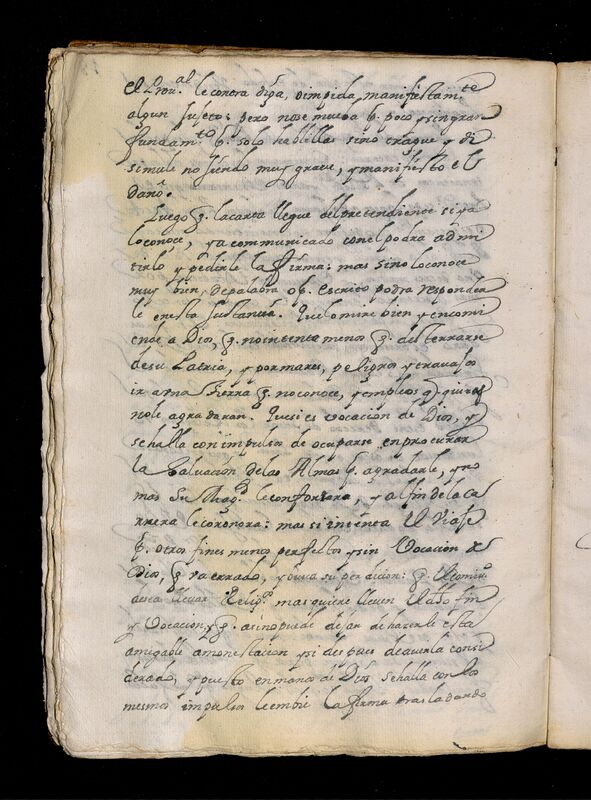 el Prou.al le contra diga, o impida, manifiestam.te
algun sujeto: pero no se mueba p.r poco y sin gran
fundam.to p.r solo hablillas sino trague y di
simule no siendo muy graue, y manifiesto el
daño.
Luego q. la carta llegue del pretendiente si ya
lo conoce, y a communicado con el podra admi
tirlo y pedirle la firma: mas si no lo conoce
muy bien, de palabra o p.r escrito podra responder
le en esta sustancia. Que lo mire bien y encomi
ende a Dios, q. no intenta menos q. desterrarse
de su Patria, y por mares, peligros y trauajos
ir a una tierra q. no conoce, y empleos q. quiza
no le agradaran. Que si es vocacion de Dios, y
se halla con impulsos de ocuparse en procurar
la saluacion de las Almas p.r agradarle, y no
mas Su Mag.d le confortara, y al fin de la ca
rrera le coronora: mas si intenta el viaje
p.r otros fines menos perfectos y sin vocacion de
Dios, q. va errado, y busca su perdicion: q. el
desea lleuar Relig.s mas quiere lleuen fin
y vocacion, y q. asi no puede dejar de hacerle esta
amigable amonestacion y si despues de auerla consi
derado, y puesto en manos de Dios se halla con los
mesmos impulsos le embie la firma trasladando